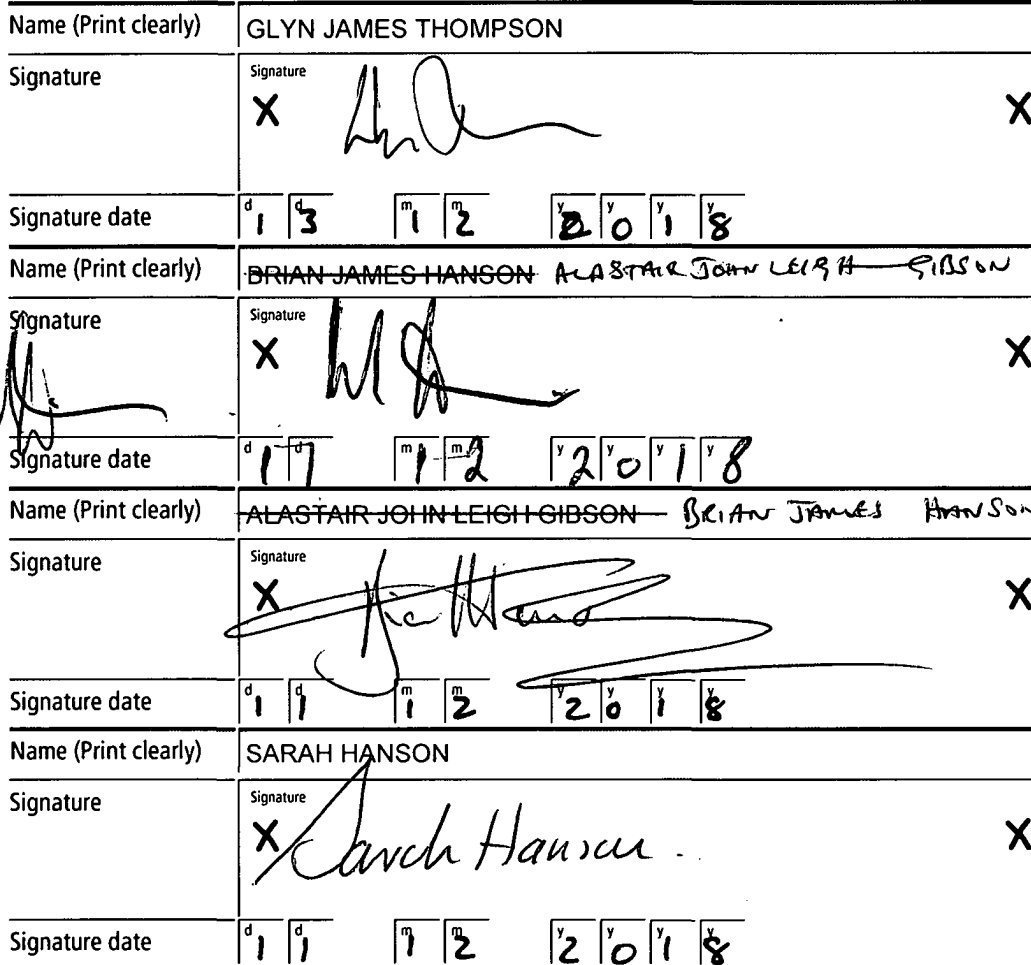 Name (Print clearly) GLYN JAMES THOMPSON
Signature Signature
X X
Signature date d 1 d 3 m 1 m 2 y 2 y 0 y 1 y 8
Name (Print clearly) BRIAN JAMES HANSON ALASTAIR JOHN LEIGH GIBSON
Signature Signature
X X
Signature date d 1 d 7 m 1 m 2 y 2 y 0 y 1 y 8
Name (Print clearly) ALASTAIR JOHN LEIGH GIBSON BRIAN JAMES HANSON
Signature Signature
X X
Signature date d 1 d 1 m 1 m 2 y 2 y 0 y 1 y 8
Name (Print clearly) SARAH HANSON
Signature Signature
X Sarah Hanson. X
Signature date d 1 d 1 m 1 m 2 y 2 y 0 y 1 y 8